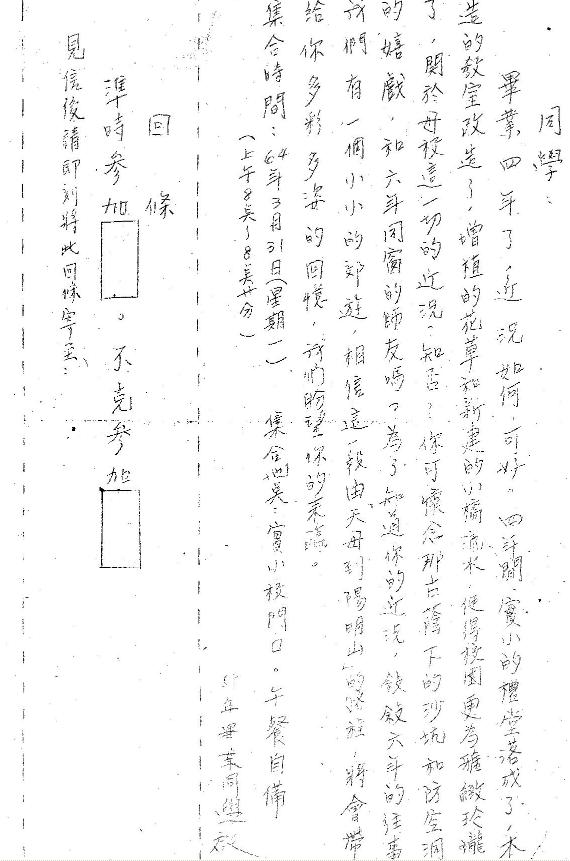 同學:
畢業四年了,近況如何,可好。四年間,實小的禮堂落成了,木
造的教室改造了,增植的花草和新建的小橋流水,使得校園更為雅緻玲瓏
了,關於母校這一切的近況,知否?你可懷念那古蔭下的沙坑和防空洞
的嬉戲,和六年同窗的師友嗎。為了知道你的近況,敘敘六年的往事
我們有一個小小的郊遊,相信這一段由天母到陽明山的路程,將會帶
給你多彩多姿的回憶,我們盼望你的來臨。
集合時間:64年3月31日(星期一) 集合地點:實小校門口。午餐自備
(上午8點~8點廿分)
年畢業同學啟
回條
準時參加 。不克參加
見信後請即刻將此回條寄至: